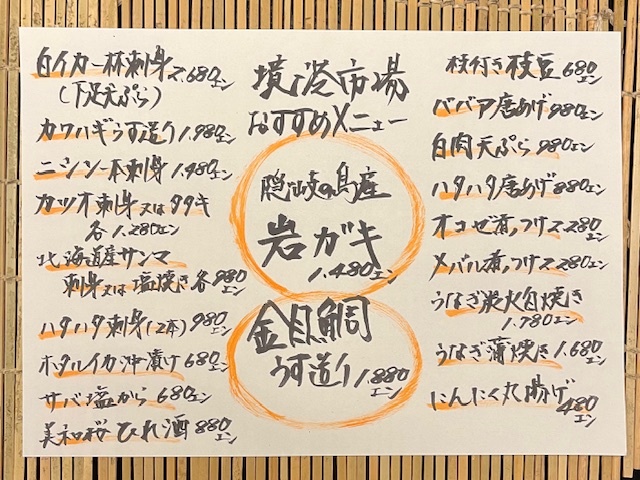 境港市場
おすすめメニュー
隠岐の島産
岩ガキ
1.480エン
金目鯛
うす造り1.880エン
白イカ一杯刺身2.680エン
(下足天ぷら)
カワハギうす造り1.980エン
ニシン一本刺身1.480エン
カツオ刺身又はタタキ
各1.280エン
北海道産サンマ
刺身又は塩焼き各980エン
ハタハタ刺身(2本)980エン
ホタルイカ沖漬け680エン
サバ塩から680エン
美和桜ひれ酒880エン
枝付き枝豆680エン
ババア唐あげ980エン
白肉天ぷら980エン
ハタハタ唐あげ880エン
オコゼ煮つけ2.280エン
メバル煮つけ2.280エン
うなぎ炭火白焼き
1.780エン
うなぎ蒲焼き1.680エン
にんにく丸揚げ
480エン